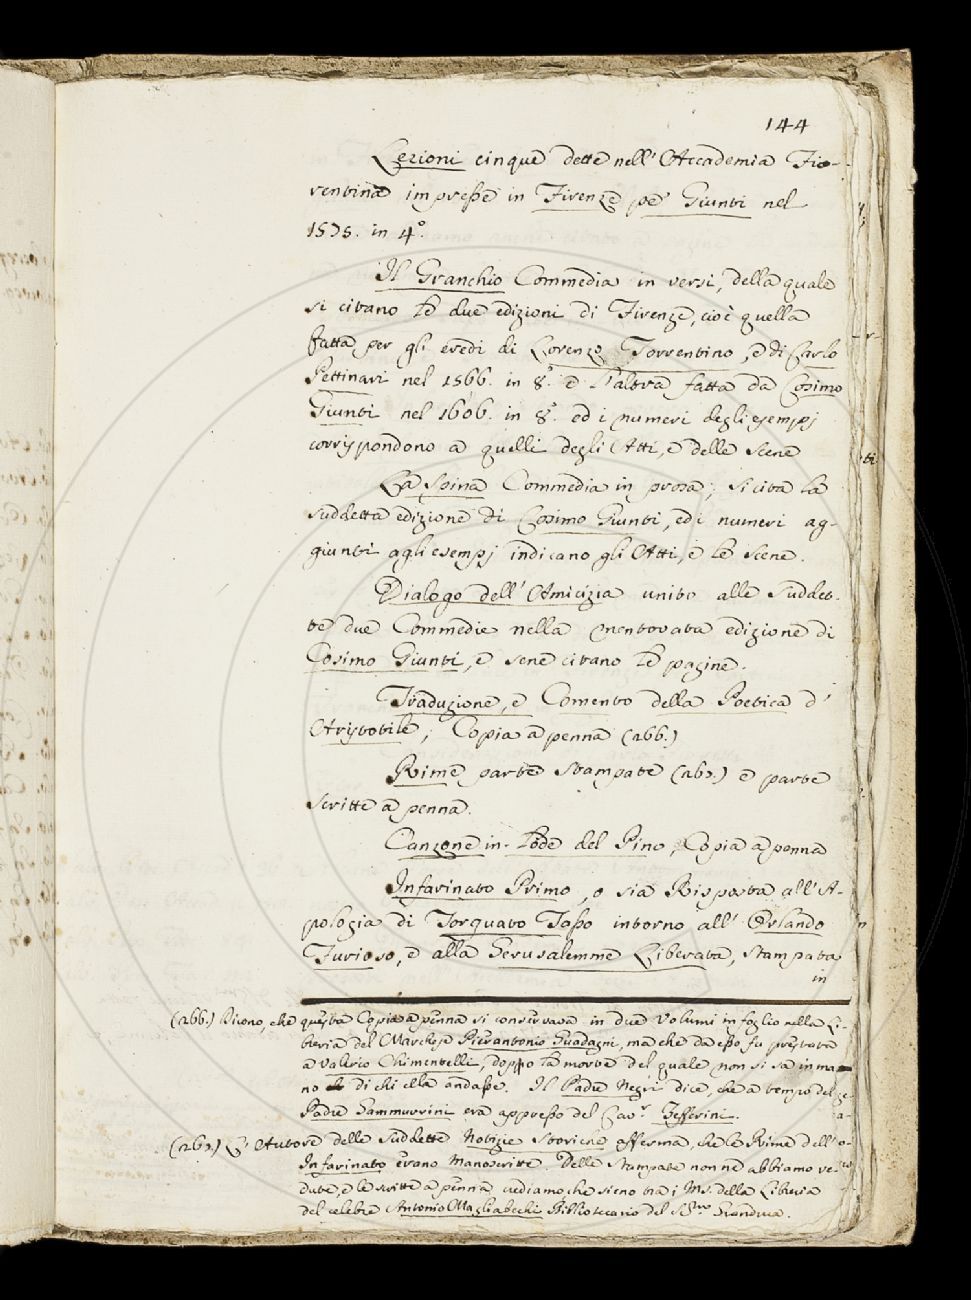 144
Lezioni cinque dette nell'Accademia Fio-
rentina impresse in Firenze pe' Giunti nel
1575. in 4°.
Il Granchio Commedia in versi, della quale
si citano le due edizioni di Firenze, cioè quella
fatta per gli eredi di Lorenzo Torrentino, e di Carlo
Pettinari nel 1566. in 8°. e l'altra fatta da Cosimo
Giunti nel 1606. in 8°. ed i numeri degli esempj
corrispondono a quelli degli Atti, e delle Scene
La Spina Commedia in prosa; si cita la
suddetta edizione di Cosimo Giunti, ed i numeri ag-
giunti agli esempj indicano gli Atti, e le Scene.
Dialogo dell'Amicizia unito alle suddet-
te due Commedie nella mentovata edizione di
Cosimo Giunti, e sene citano le pagine.
Traduzione, e Comento della Poetica d'
Aristotile, Copia a penna (266.)
Rime parte stampate (267.) e parte
scritte a penna.
Canzone in lode del Pino, Copia a penna
Infarinato Primo, o sia Risposta all'A-
pologia di Torquato Tasso intorno all'Orlando
Furioso, e alla Gerusalemme Liberata, stampata
in
(266.) Dicono, che questa Copia a penna si conservava in due Volumi in foglio nella Li-
breria del Marchese Pierantonio Guadagni, ma che da esso fu prestata
a Valerio Chimentelli, doppo la morte del quale non si sa in ma
no di chi ella andasse. Il Padre Negri dice, che a tempo del
Padre Gammurrini era appresso del Cav.r Jefferini.
(267.) L'Autore delle suddette Notizie Storiche afferma, che le Rime dell'
Infarinato erano Manoscritte. Delle stampate non ne abbiamo ve-
dute, e le scritte a penna crediamo che sieno tra i Ms. della Libreria
del celebre Antonio Magliabechi Bibliotecario del Granduca.